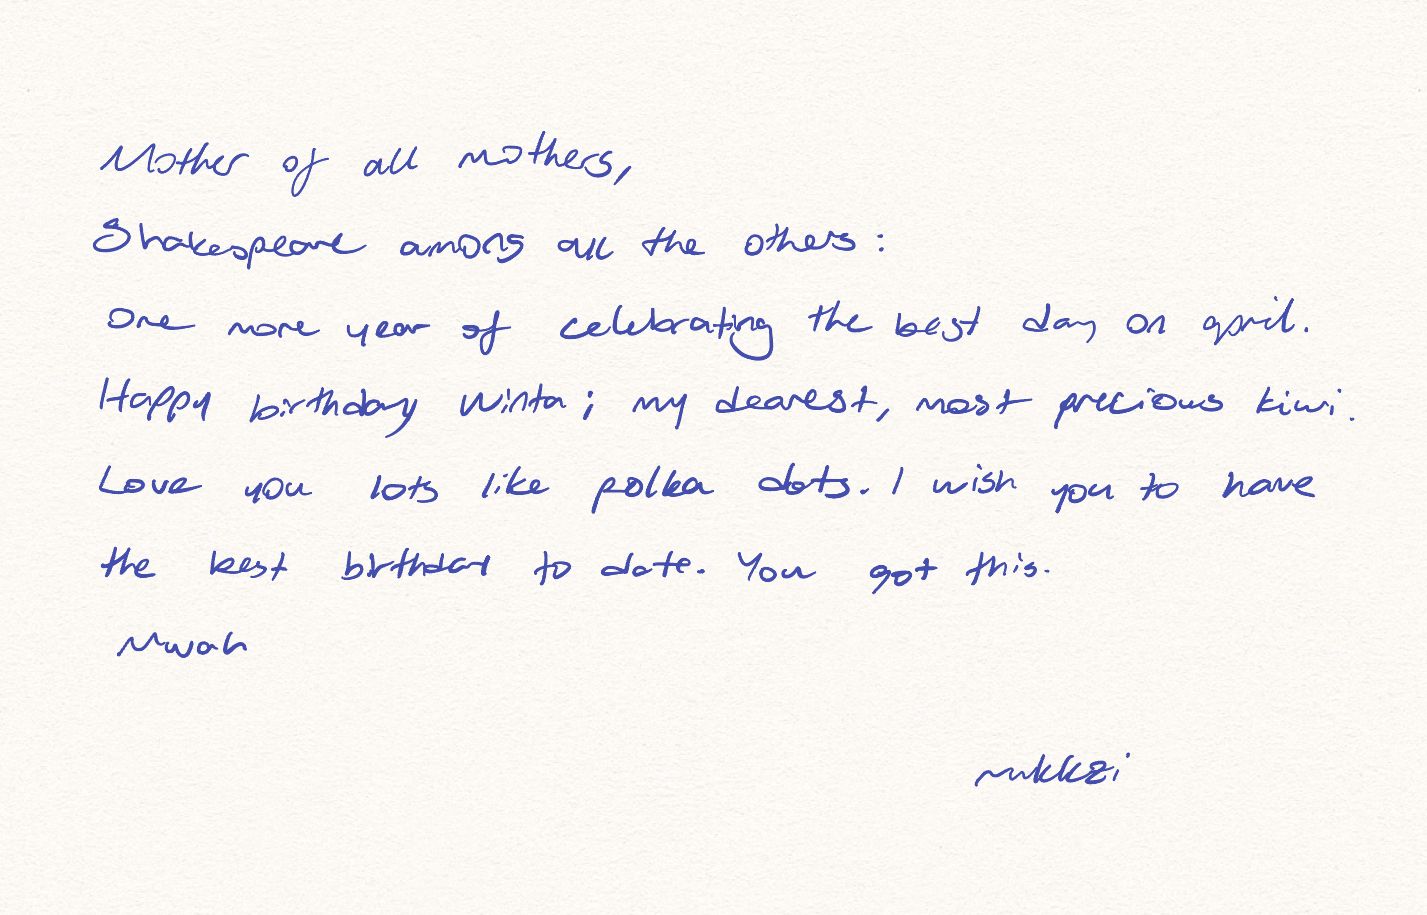 Mother of all mothers,
Shakespeare among all the others :
One more year of celebrating the best day on april.
Happy birthday Winta ; my dearest, most precious kiwi.
Love you lots like polka dots. I wish you to have
the best birthday to date. You got this.
Mwah
mukkzi